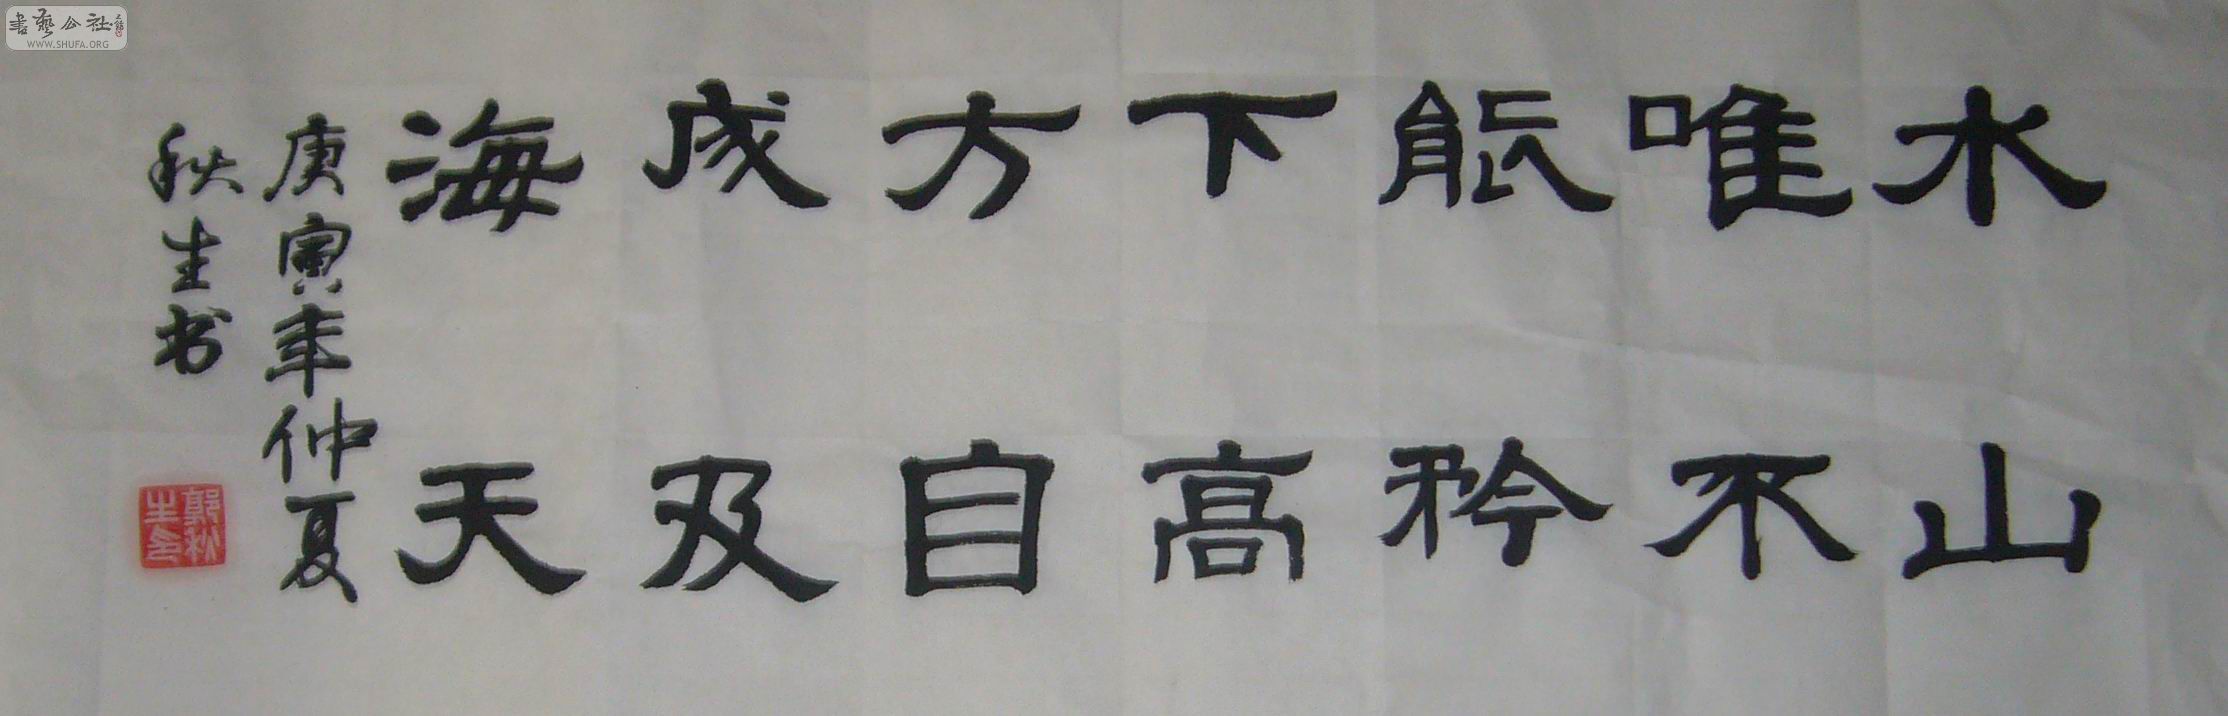 水唯能下方成海
山不矜高自及天
庚寅年仲夏
秋生书
郭秋
生印
書藝公社
WWW.SHUFA.ORG